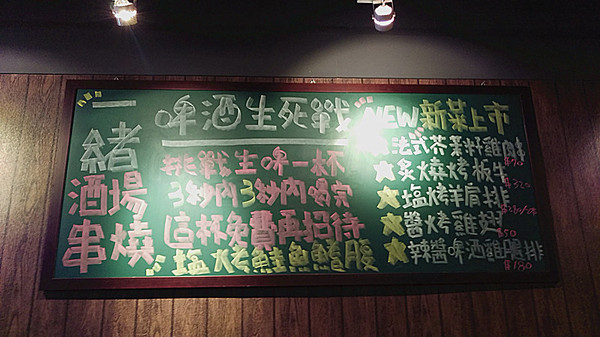 一緒
酒場
串燒
啤酒生死戰
挑戰生啤一杯
3秒內3秒內喝完
這杯免費再招待
塩烤鮭魚鰭腹
NEW 新菜上市
法式芥茉籽雞
$90
炙燒烤板牛
$320
塩烤羊肩排
醬烤雞
$50
辣醬啤酒雞腿排
$180